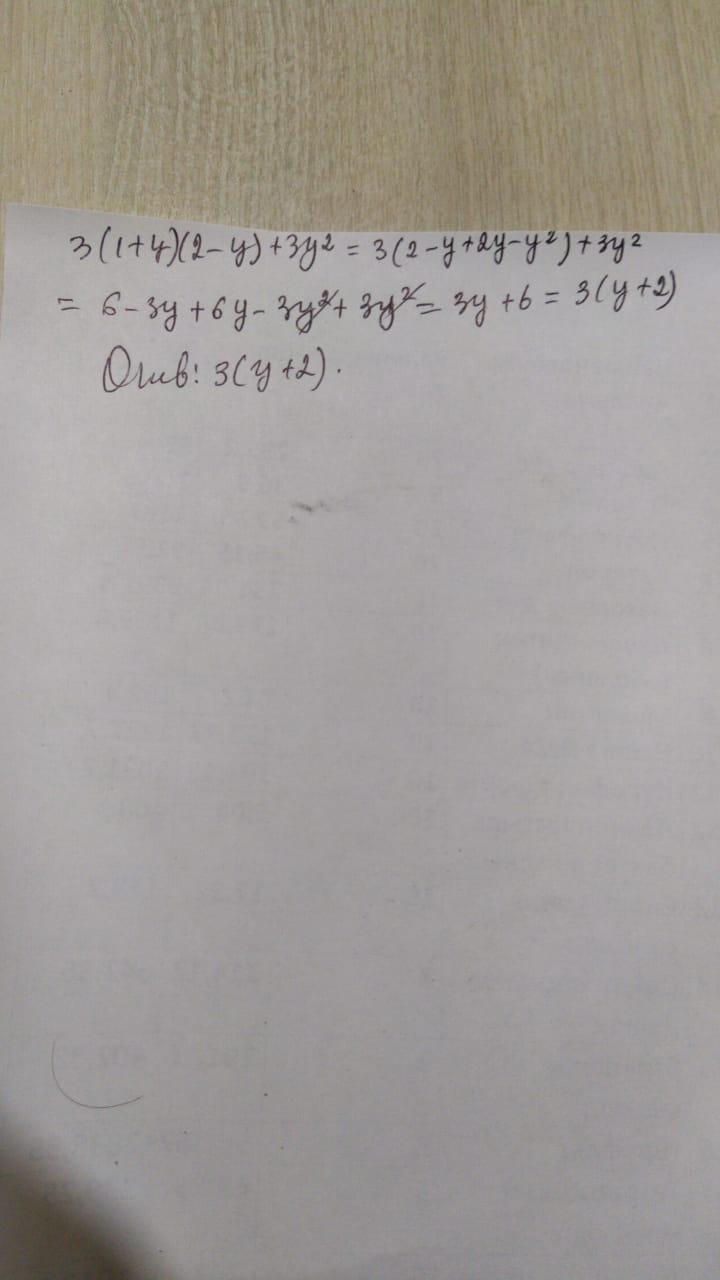 3(1+y)(2-y)+3y² = 3(2-y+2y-y²)+3y²
= 6-3y+6y-3y²+3y² = 3y+6 = 3(y+2)
Ответ: 3(y+2).